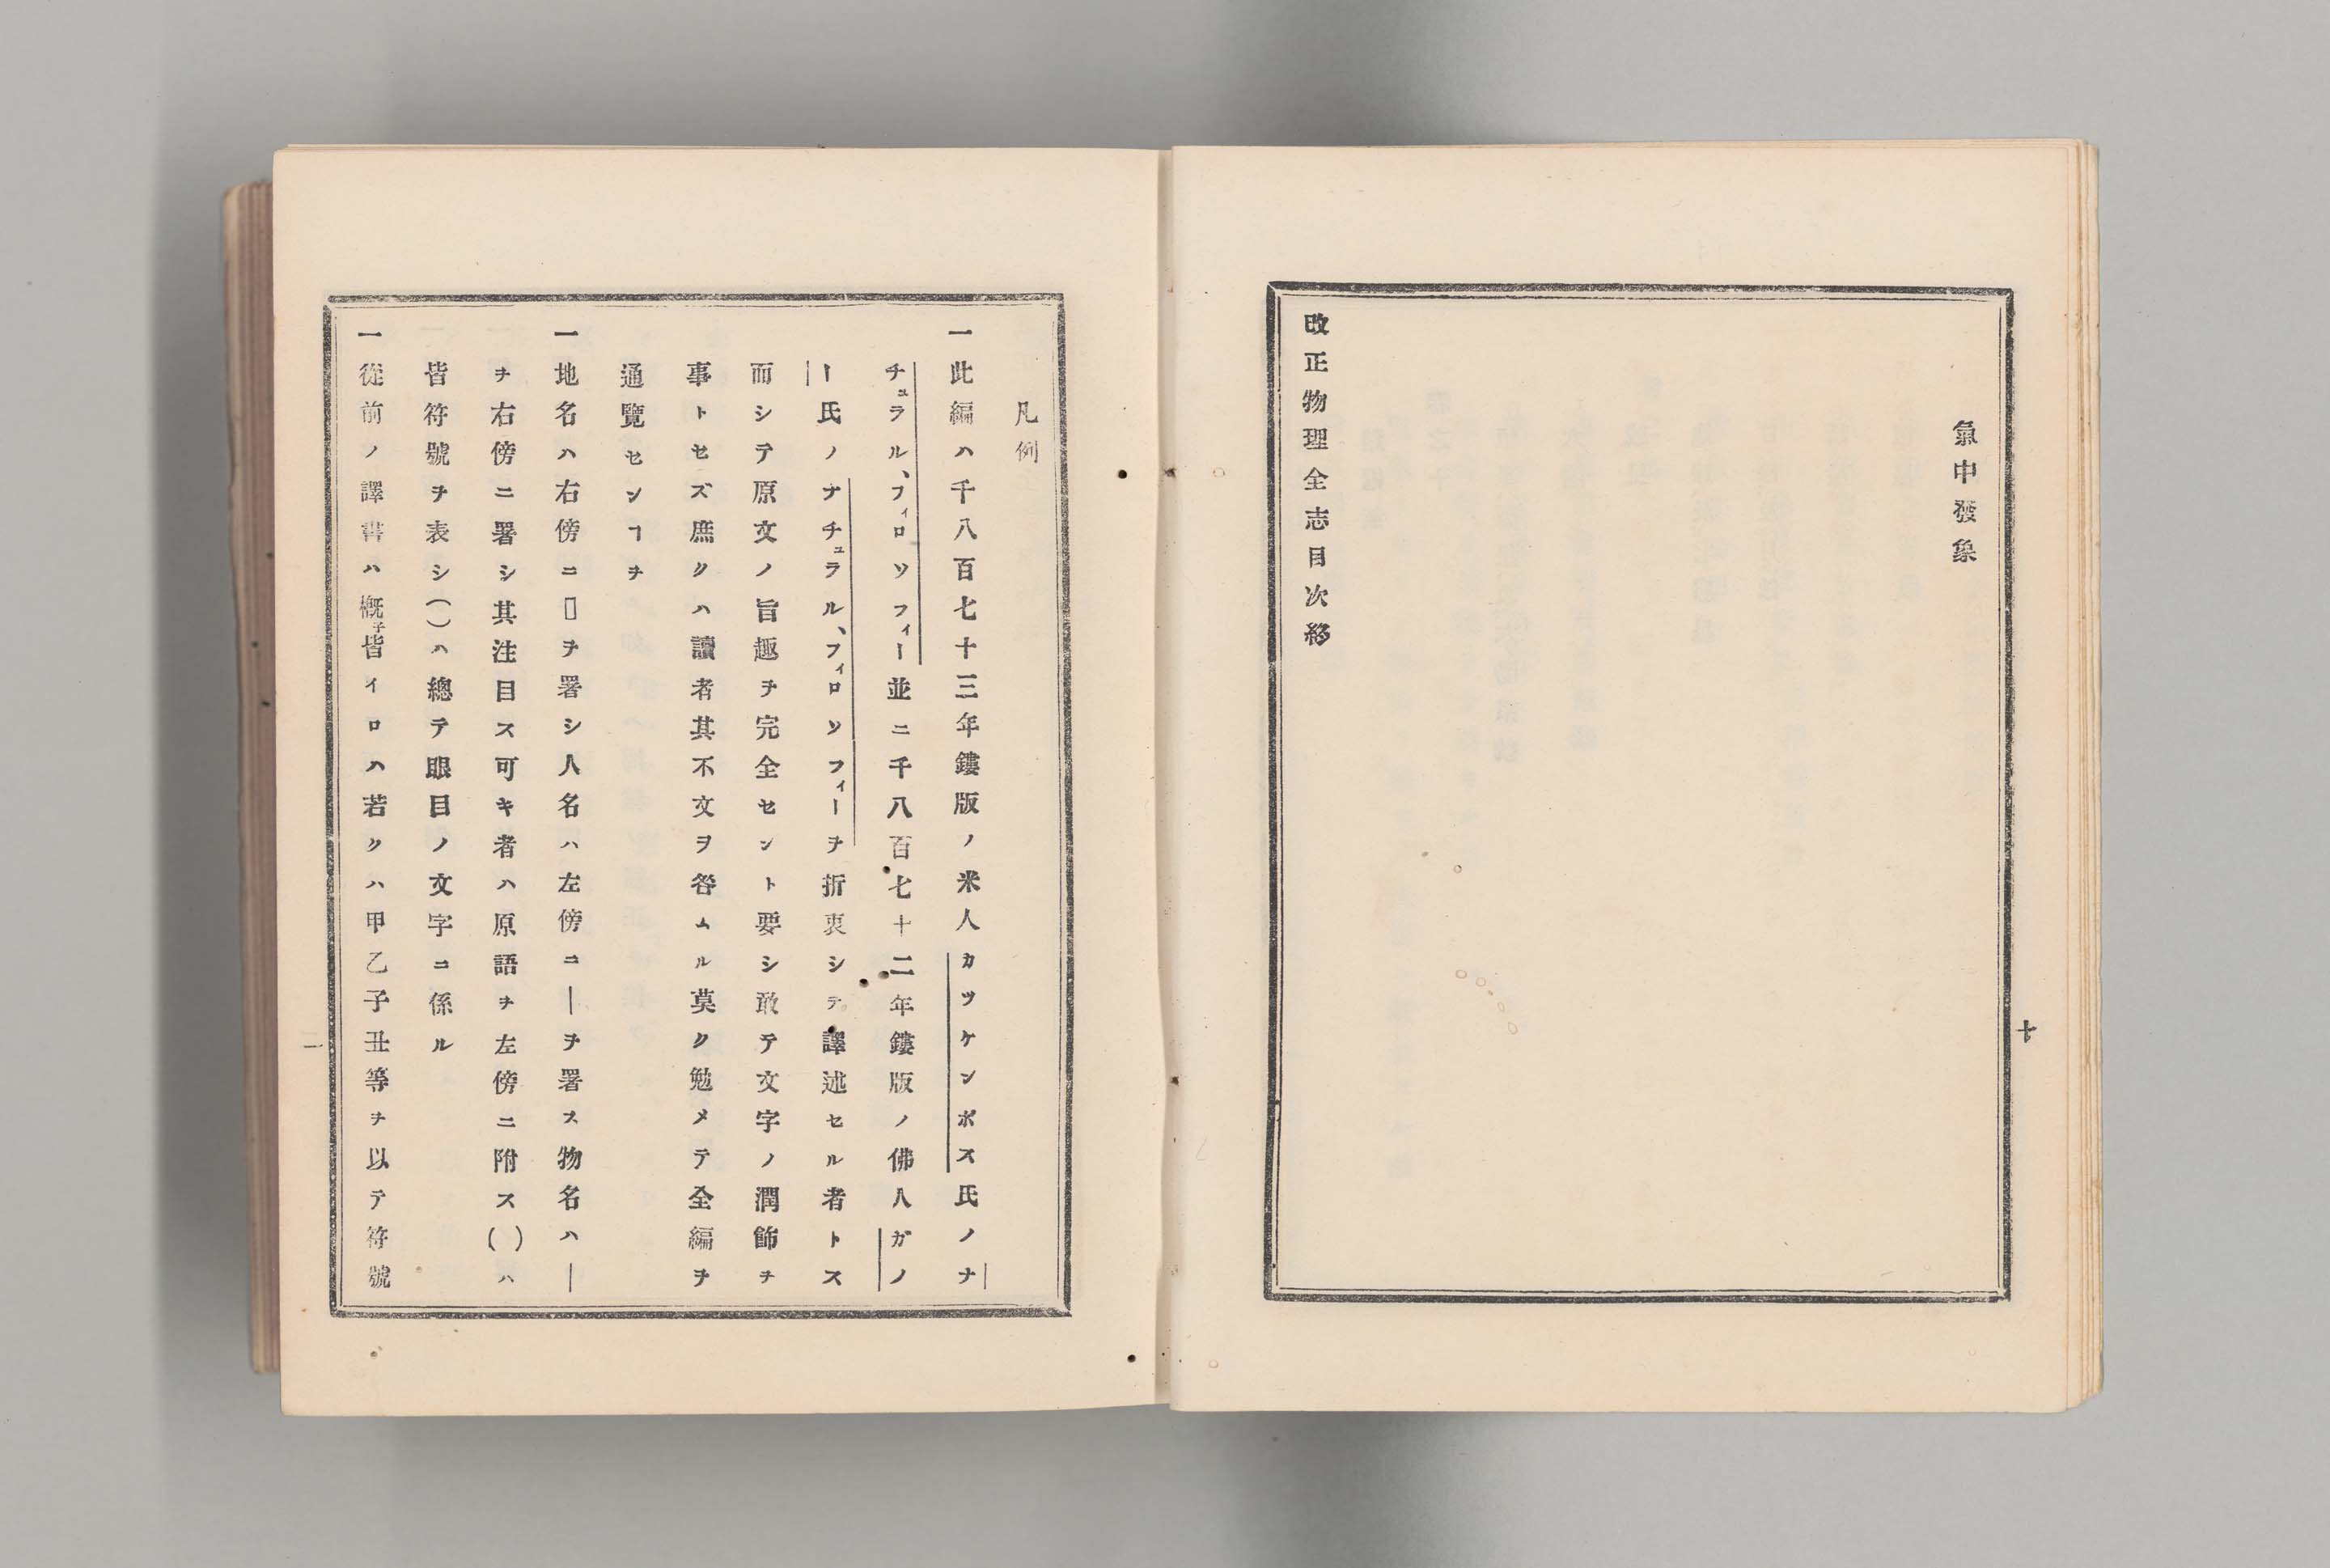 氣中發象
改正物理全志目次終
十
凡例
一此編ハ千八百七十三年鏤版ノ米人カツケンボス氏ノナ
チュラル、フィロソフィー並ニ千八百七十二年鏤版ノ佛人ガノ
ー氏ノナチュラル、フィロソフィーヲ折衷シテ譯述セル者トス
而シテ原文ノ旨趣ヲ完全セント要シ敢テ文字ノ潤飾ヲ
事トセズ庶クハ讀者其不文ヲ咎ムル莫ク勉メテ全編ヲ
通覽センヿヲ
一地名ハ右傍ニ▯ヲ署シ人名ハ左傍ニ|ヲ署ス物名ハ|
ヲ右傍ニ署シ其注目ス可キ者ハ原語ヲ左傍ニ附ス()ハ
皆符號ヲ表シ()ハ總テ眼目ノ文字ニ係ル
一從前ノ譯書ハ概子皆イロハ若クハ甲乙子丑等ヲ以テ符號
一